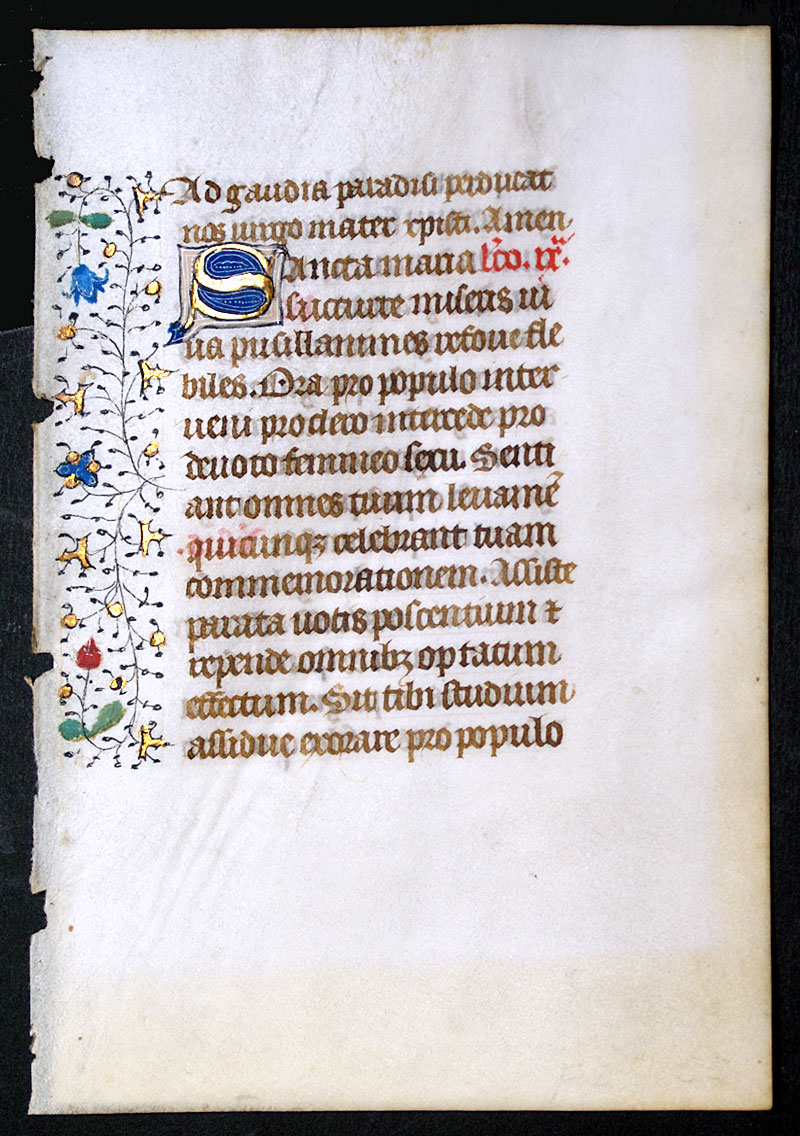 Ad gaudia paradisi perducat
nos uirgo mater xpisti. Amen
Sancta maria lc̄o. ix.ᵃ
succurre miseris iu
ua pusillanimes refoue fle
biles. Ora pro populo inter
ueni pro clero intercede pro
deuoto femineo sexu. Senti
ant omnes tuum leuamē
quicunqꝫ celebrant tuam
commemorationem. Assiste
parata uotis poscentium ⁊
repende omnibꝫ optatum
effectum. Sit tibi studium
assidue exorare pro populo